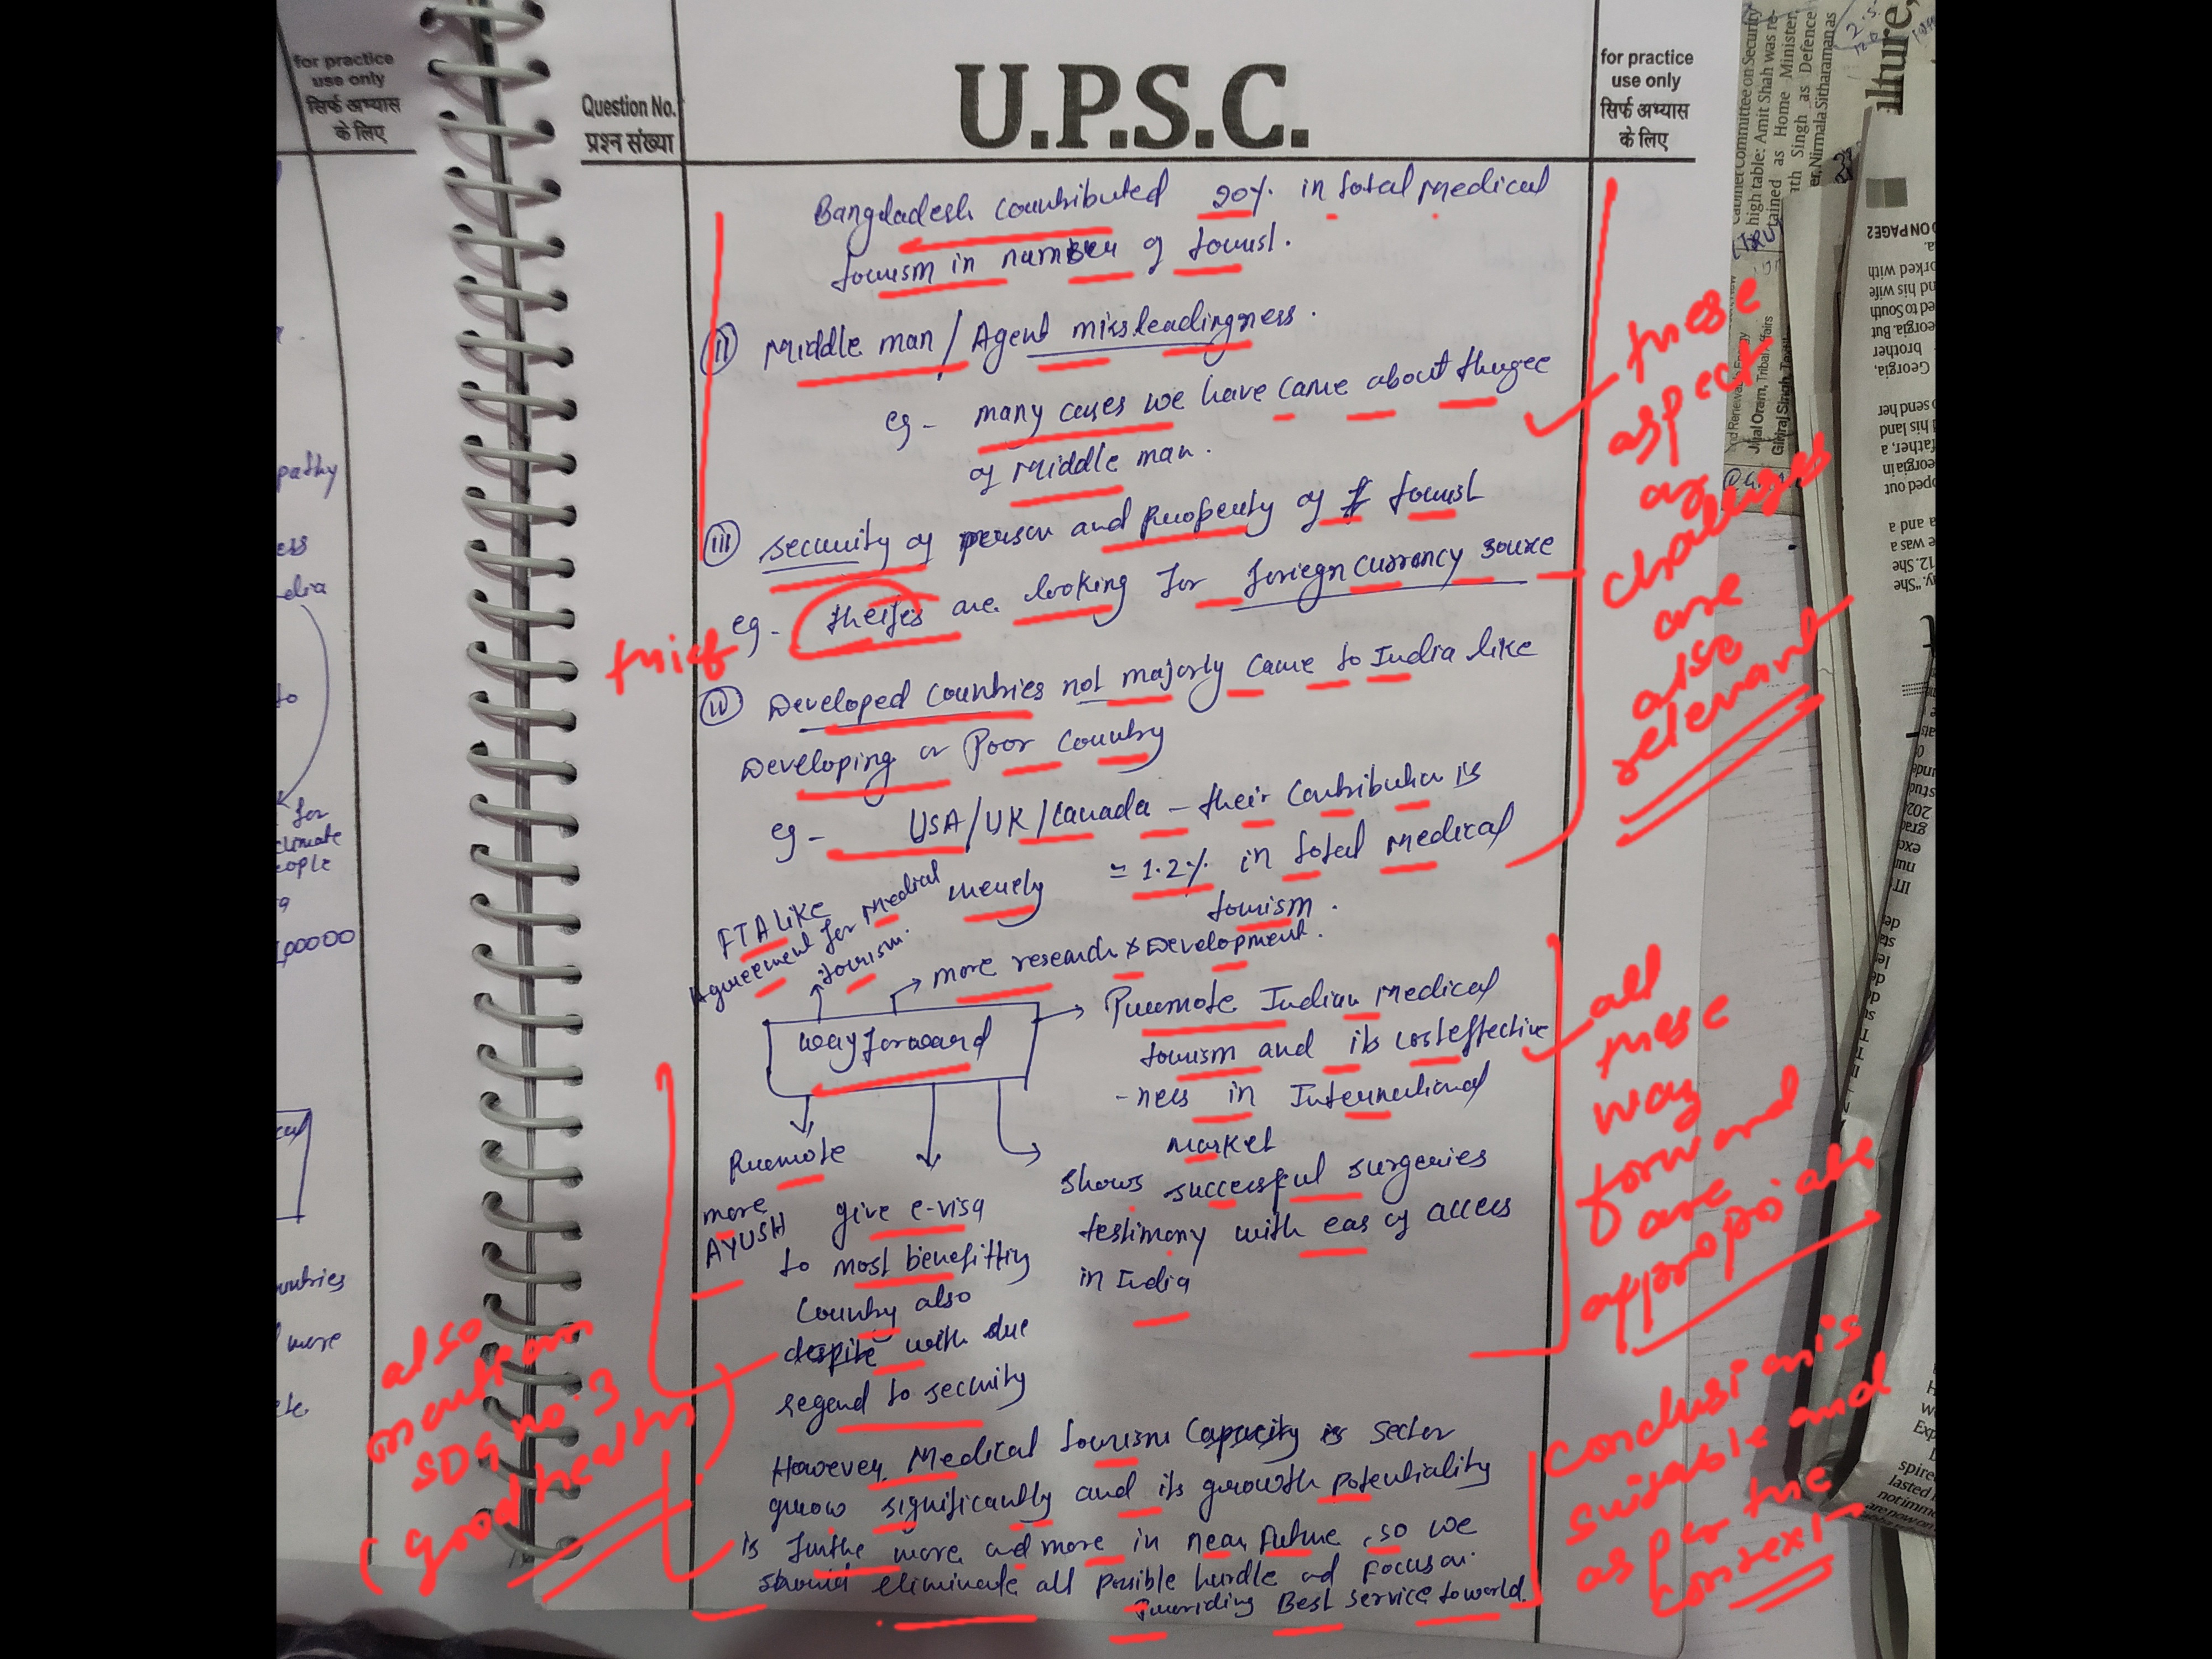 for practice
use only
सिर्फ अभ्यास
के लिए
Question No.
प्रश्न संख्या
U.P.S.C.
for practice
use only
सिर्फ अभ्यास
के लिए
Bangladesh contributed 20% in total Medical
tourism in number of tourist.
(ii) Middle man / Agent missleadingness.
eg - many cases we have came about thugee
of Middle man.
(iii) security of person and property of tourist
eg. theifes are looking for foriegn currency source
thief
(iv) Developed Countries not majorly came to India like
Developing or Poor Country
eg - USA/UK/Canada - their Contribution is
merely = 1.2% in total Medical
tourism.
these
aspect
as
challenges
are
also
relevant
FTA like
Agreement for Medical
tourism.
more research & Development.
way forward
Promote Indian Medical
tourism and its costeffective
-ness in International
market
Promote
more
AYUSH
give e-visa
to most benefitting
Country also
despite with due
regard to security
shows successful surgeries
testimony with eas of access
in India
all
these
way
forward
are
appropriate
also
mention
SDG no. 3
(good health)
However, Medical tourism Capacity is Sector
grow significantly and its growth potentiality
is furthe more and more in near future, so we
should eliminate all possible hurdle and Focus on
Providing Best service to world.
Conclusion is
suitable and
as per the
context
pathy
ess
dia
to
for
climate
eople
,00000
untries
more
ON PAGE 2
Cabinet Committee on Security
high table: Amit Shah was re-
tained as Home Minister,
ath Singh as Defence
er, Nirmala Sitharaman as